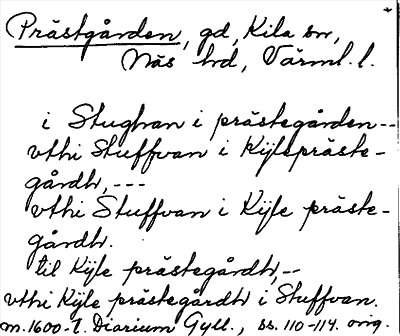 Prästgården, gd, Kila sn,
Näs hd, Värml. l.
i Stughun i prästegården--
vthi Stuffvan i Kijlepräste-
gårdh, ---
vthi Stuffvan i Kijle präste-
gårdh.
til Kijle prästegårdh, --
vthi Kijle prästegårdh i Stuffvan.
m. 1600-t. Diarium Gyll., ss. 110-114. orig.